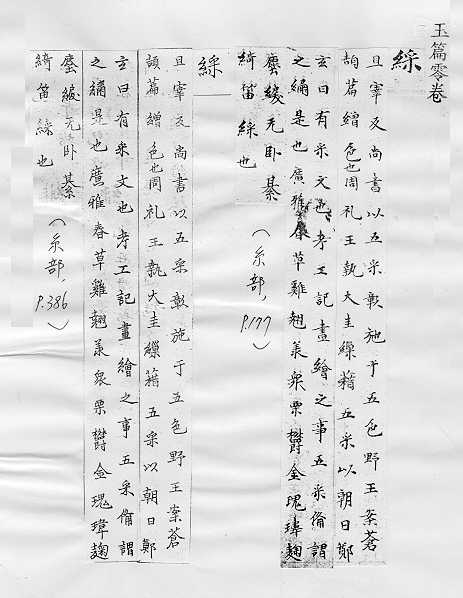 玉篇零卷
綵
且宰反尚書以五采彰施于五色野王案蒼
頡篇繒色也周礼王執大圭繅藉五采以朝日鄭
玄曰有采文也考工記畫繪之事五采俻謂
之繡是也廣雅草雞翹衆栗欝金瑰瑋麹
塵緩无卧綦
綺笛綵也
（糸部，P.177）
綵
且宰反尚書以五采彰施于五色野王案蒼
頡篇繒色也周礼王執大圭繅藉五采以朝日鄭
玄曰有采文也考工記畫繪之事五采俻謂
之繡是也廣雅春草雞翹衆栗欝金瑰瑋麹
塵緩无卧綦
綺笛綵也
（糸部，P.386）